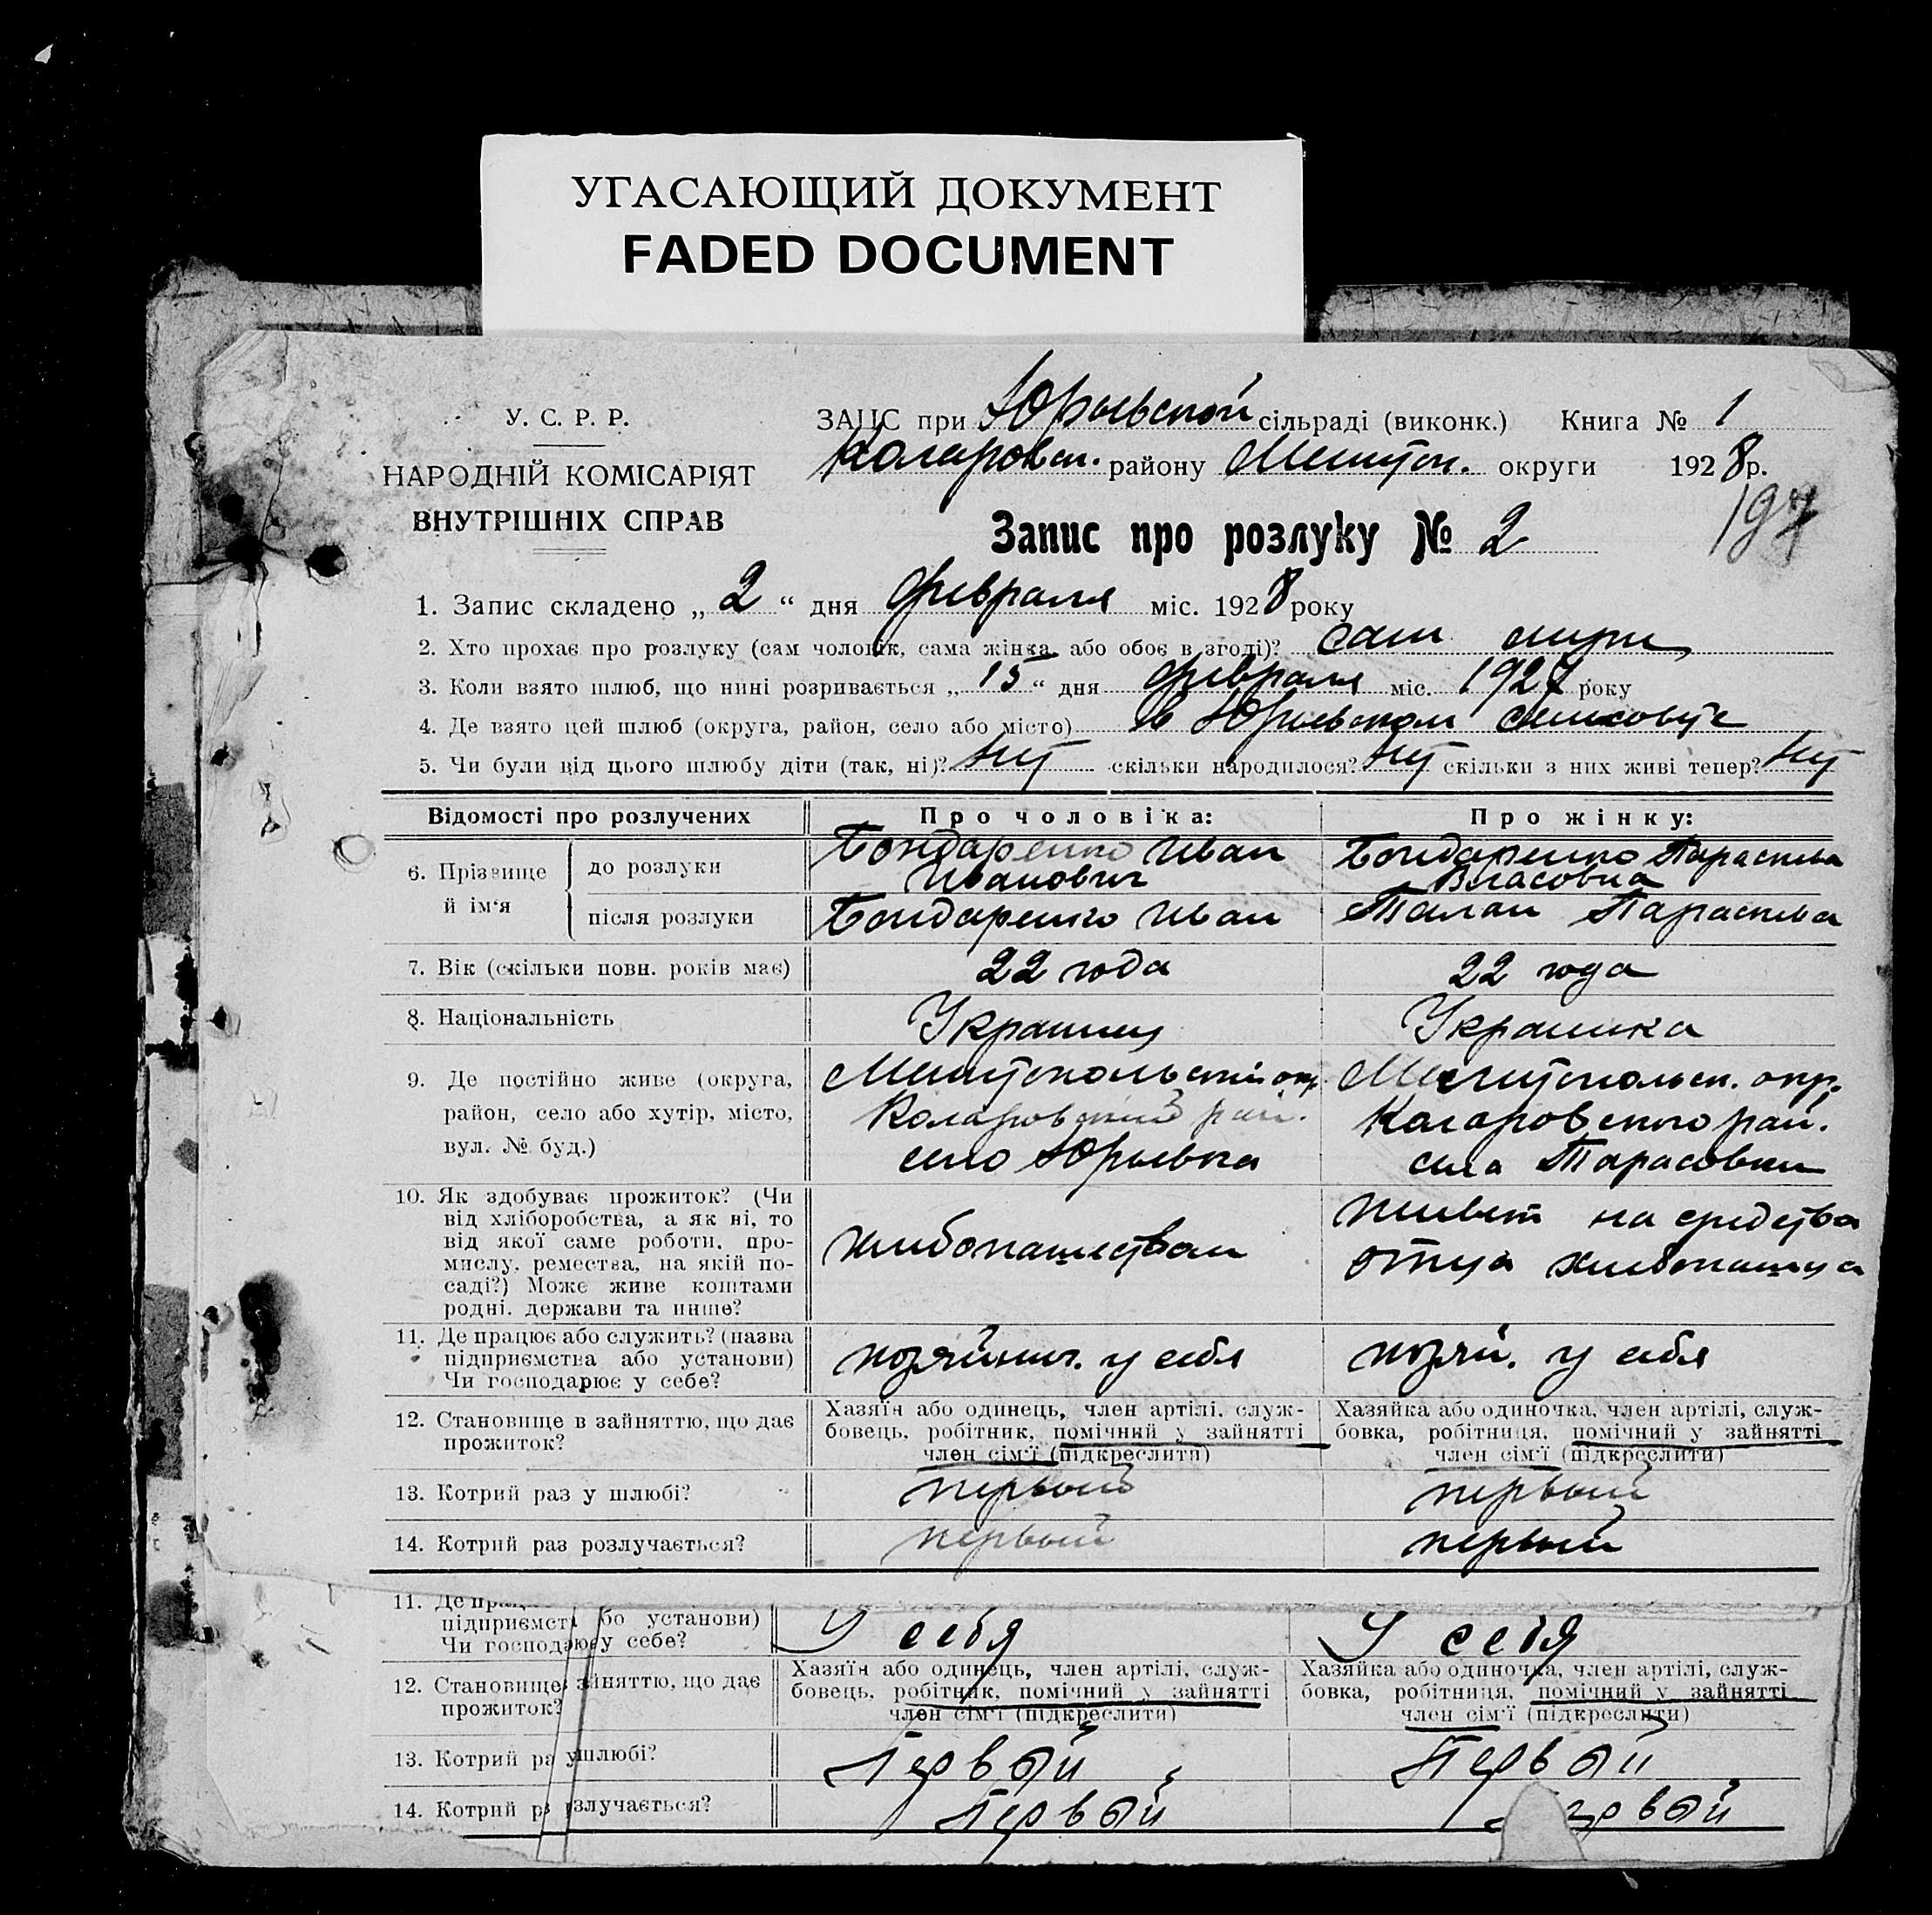 УГАСАЮЩИЙ ДОКУМЕНТ
FADED DOCUMENT
У. С. Р. Р.
НАРОДНІЙ КОМІСАРІЯТ
ВНУТРІШНІХ СПРАВ
ЗАЦС при Юрьевской сільраді (виконк.) Книга № 1
Коларовск. району Мелитоп. округи 1928 р.
197
Запис про розлуку № 2
1. Запис складено „ 2 “ дня февраля міс. 1928 року
2. Хто прохає про розлуку (сам чоловік, сама жінка, або обоє в згоді)? сам
3. Коли взято шлюб, що нині розривається „ 15 “ дня февраля міс. 1927 року
4. Де взято цей шлюб (округа, район, село або місто) в Юрьевском сельсовете
5. Чи були від цього шлюбу діти (так, ні)? Нет скільки народилося? Нет скільки з них живі тепер? Нет
Відомості про розлучених Про чоловіка: Про жінку:
6. Прізвище й ім'я
до розлуки Бондаренко Иван Иванович Бондаренко Параскева Власовна
після розлуки Бондаренко Иван Талан Параскева
7. Вік (скільки повн. років має) 22 года 22 года
8. Національність Украинец Украинка
9. Де постійно живе (округа, Мелитопольский окр. Мелитопольск. окр.
район, село або хутір, місто, Коларовский рай. Коларовского рай.
вул. № буд.) село Юрьевка села Тарасовки
10. Як здобуває прожиток? (Чи
від хліборобства, а як ні, то
від якої саме роботи, про-
мислу, ремества, на якій по-
саді?) Може живе коштами
родні, держави та инше?
хлебопашеством
живет на средства
отца хлебопашца
11. Де працює або служить? (назва
підприємства або установи)
Чи господарює у себе?
хозяйнич. у себя хозяй. у себя
12. Становище в зайняттю, що дає
прожиток?
Хазяїн або одинець, член артілі, служ-
бовець, робітник, помічний у зайнятті
член сім'ї (підкреслити)
Хазяйка або одиночка, член артілі, служ-
бовка, робітниця, помічний у зайнятті
член сім'ї (підкреслити)
13. Котрий раз у шлюбі? первый первый
14. Котрий раз розлучається? первый первый
11. Де прац
підприємст бо установи)
Чи господарює у себе?
У себя У себя
12. Становище зайняттю, що дає
прожиток?
Хазяїн або одинець, член артілі, служ-
бовець, робітник, помічний у зайнятті
член сім'ї (підкреслити)
Хазяйка або одиночка, член артілі, служ-
бовка, робітниця, помічний у зайнятті
член сім'ї (підкреслити)
13. Котрий ра у шлюбі? Первой Первой
14. Котрий р злучається? Первой